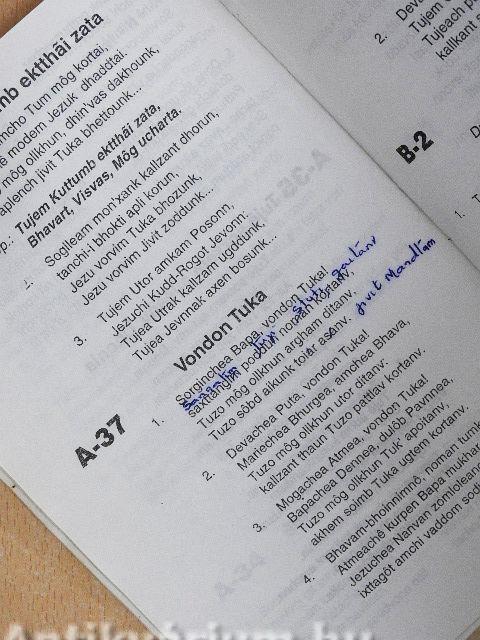 mb ekttħãi zata
moho Tum môg kortai,
ê modem Jezuk dhaddtai.
môg ollkhun, dhin'vas dakhounk,
aplench ijvit Tuka bhettounk...
p.: Tujem Kuttumb ekttħãi zata,
Bhavart, Visvas, Môg ucharta.
2. Soglleam mon'xank kallzant dhorun,
tanchi-i bhokti apli korun,
Jezu vorvim Tuka bhozunk,
Jezu vorvim Jivit zoddunk...
3. Tujem Utor amkam Posonn,
Jezuchi Kudd-Rogot Jevonn:
Tujea Utrak kallzam ugddunk,
Tujea Jevnnak axen bosunk...
A-37
Vondon Tuka
1. Sorginchea Bapa, vondon Tuka!
saxttangim poddun noman kortanv,
Tuzo môg ollkhun argham ditanv.
Tuzo sobd aikunk toiar asanv.
stuti gaitanv
jivit Mandtam
2. Devachea Puta, vondon Tuka!
Mariechea Bhurgea, amchea Bhava,
Tuzo môg ollkhun utor ditanv:
kallzant thaun Tuzo pattlav kortanv.
3. Mogachea Atmea, vondon Tuka!
Bapachea Dennea, dulôb Pavnnea,
Tuzo môg ollkhun Tuk' apoitanv,
akhem soimb Tuka ugtem kortanv.
4. Bhavam-bhoinnimnô, noman
Atmeachê kurpen Bapa mukhar
Jezuchea Nanvan zomloleanc
ixttagôt amchi vaddom sod
2. Deva
Tujem
Tujeach p
kallkant s
B-2
D
1. T
Antikvárium.hu